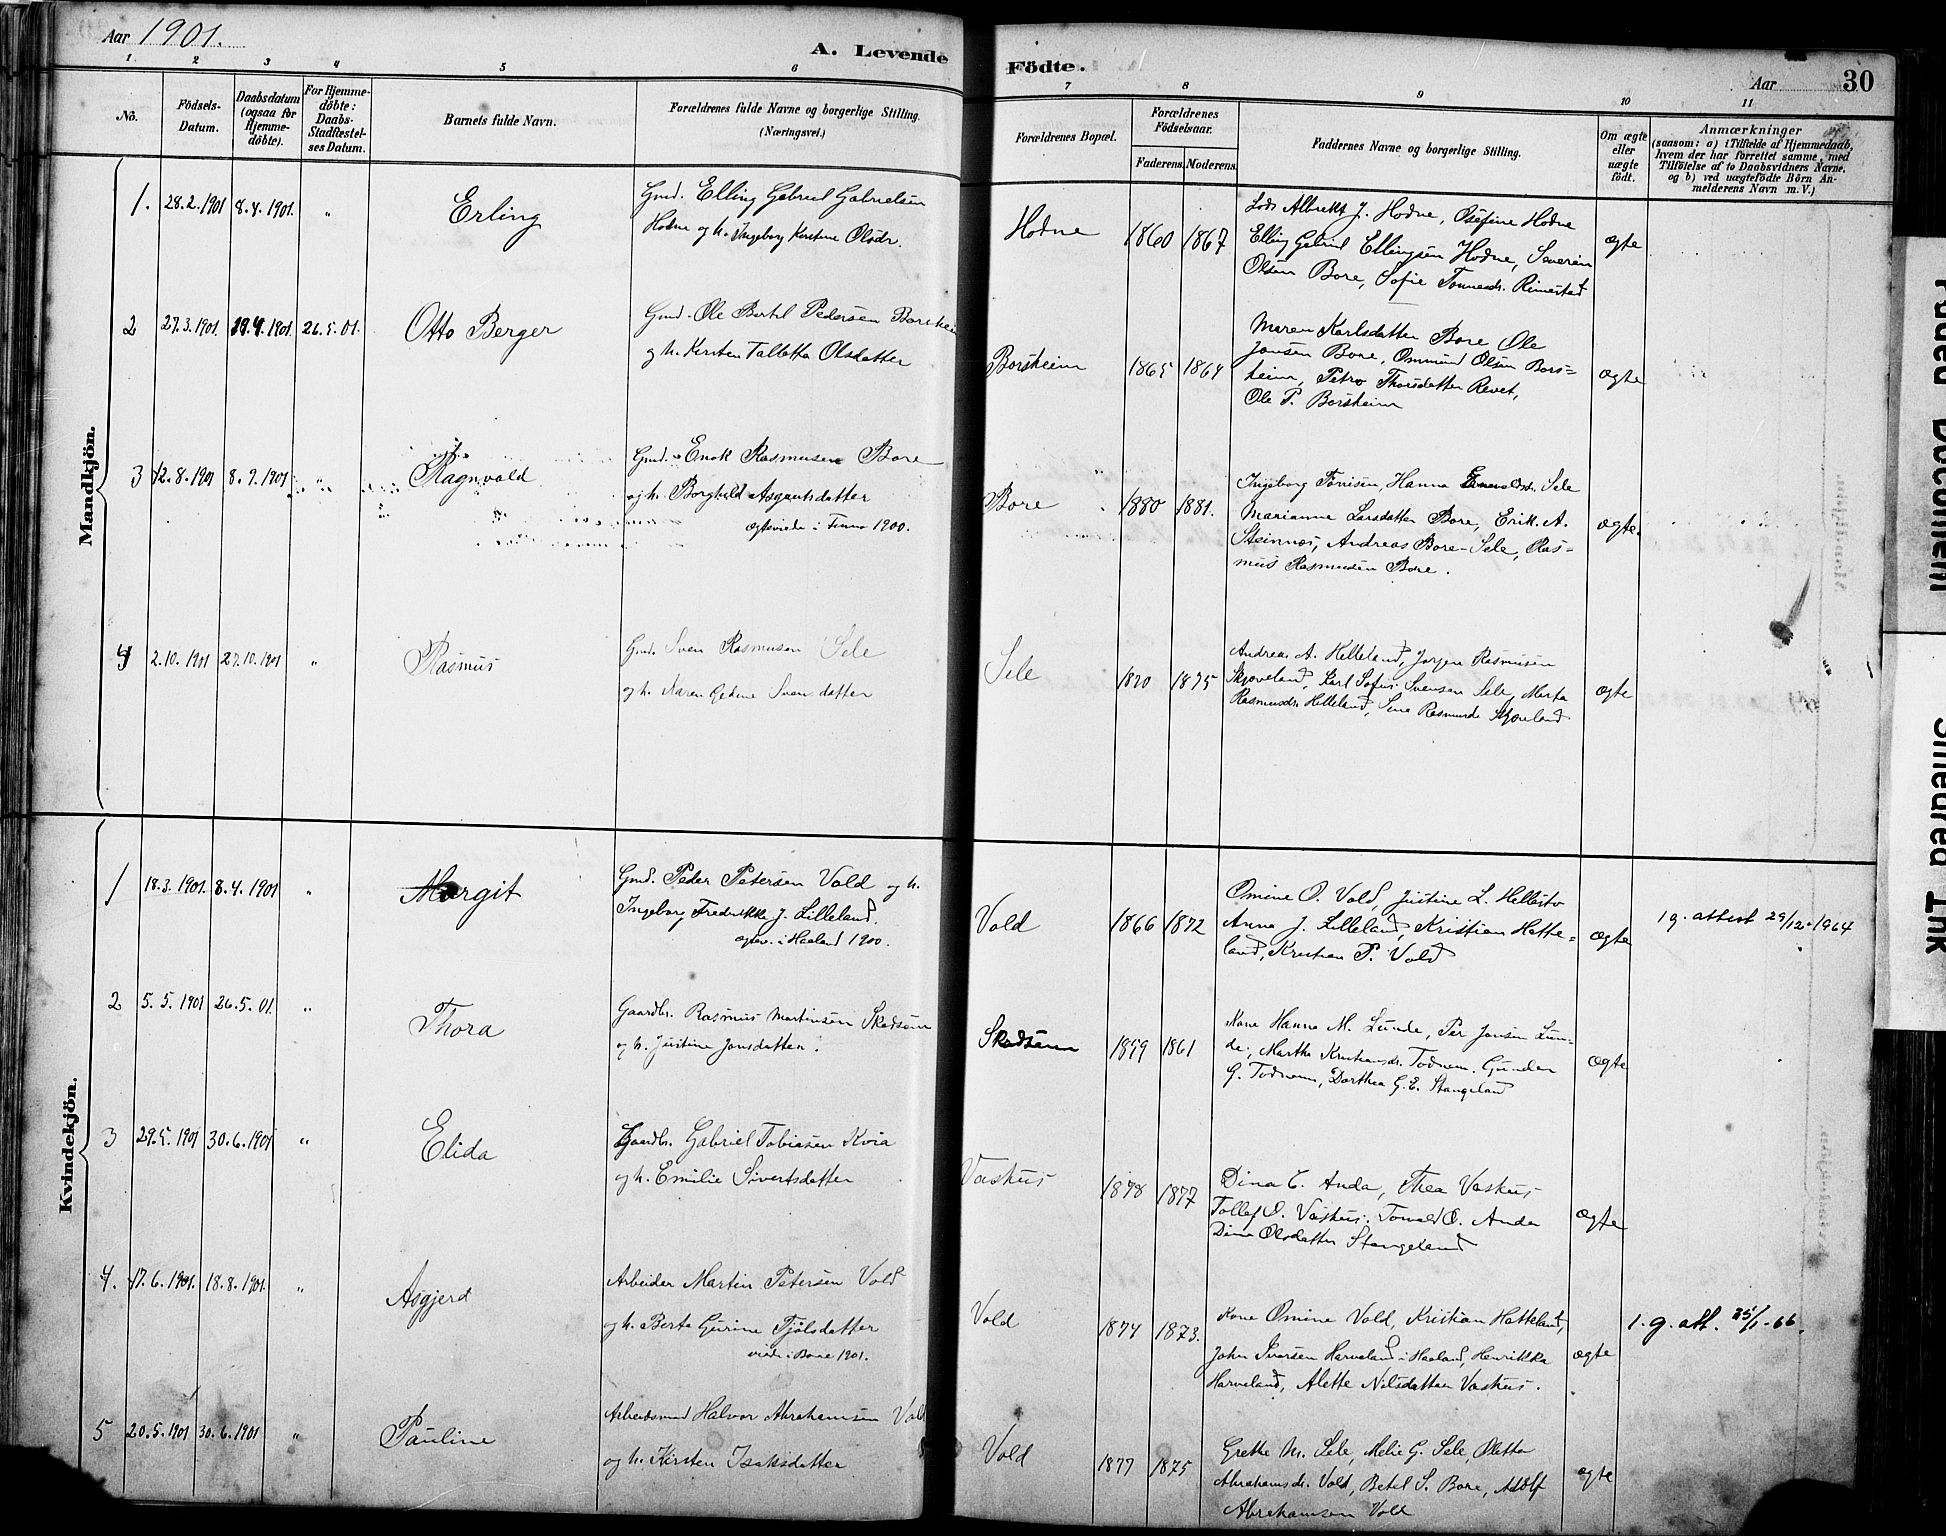 Aar 1901.
A. Levende Fødte.
Aar
30
1
2
3
4
5
6
7
8
9
10
11
No.
Födsels-Datum.
Daabsdatum (ogsaa for Hjemme-döbte).
For Hjemme-döbte: Daabs-Stadfæstel-ses Datum.
Barnets fulde Navn.
Forældrenes fulde Navne og borgerlige Stilling.
(Næringsvei.)
Forældrenes Bopæl.
Forældrenes Födselsaar.
Faderens.
Moderens.
Faddernes Navne og borgerlige Stilling.
Om ægte eller uægte födt.
Anmærkninger
(saasom: a) i Tilfælde af Hjemmedaab,
hvem der har forrettet samme, med
Tilföielse af to Daabsvidners Navne.
og b) ved uægtefödte Börn An-
melderens Navn m. V.)
Mandkjön.
1. 28.2.1901 8.4.1901. " Erling
Gmd. Elling Gabriel Gabrielsen
Hodne og h. Ingeborg Kirstine Olsdr.
Hodne 1860 1867
Lods Albrekt J. Hodne, Osefine Hodne
Elling Gabriel Ellingsen Hodne, Severin
Olsen Bore, Sofie Tonnesdr. Rimestad
ægte
2 27.3.1901 29.4.1901. 26.5.01. Otto Berger
Gmd. Ole Bertil Pedersen Borsheim
og h. Kirsten Talletta Olsdatter
Borsheim 1865 1864
Maren Karlsdatter Bore Ole
Jonsen Bore, Ommund Olsen Bors=
heim, Petra Thorsdatter Revet,
Ole P. Borsheim
ægte
3 12.8.1901 8.9.1901 " Ragnvald
Gmd. Enok Rasmusen Bore
og h. Borghild Asgautsdatter
ægteviede i Finnø 1900.
Bore 1880 1881.
Ingeborg Tønisen, Hanna Sele
Marianne Larsdatter Bore, Erik A.
Steinnes, Andreas Bore-Sele, Ras=
mus Rasmusen Bore.
ægte.
4 2.10.1901 27.10.1901 " Rasmus
Gmd. Sven Rasmusen Sele
og h. Karen Gedine Svensdatter
Sele 1870 1875
Andrea A. Helleland, Jørgen Rasmusen
Skjæveland, Karl Sofus Svensen Sele, Marta
Rasmusdr. Helleland, Sina Rasmusdr Skjæveland
ægte
Kvindekjön.
1 18.3.1901. 8.4.1901 " Margit
Gmd. Peder Petersen Vold og h.
Ingeborg Fredrikke J. Lilleland.
ægtev. i Haaland 1900.
Vold 1866 1872
Omine O. Vold, Justine L. Hellestø
Anna J. Lilleland, Kristian Hatte=
land, Kristian P. Vold
ægte
1 g. attest 29/12-1964
2 5.5.1901 26.5.01. " Thora
Gaardbr. Rasmus Martinsen Skadsem
og h. Justine Jonsdatter.
Skadsem 1859 1861
Kone Hanna M. Lunde, Per Jonsen Lun-
de, Martha Kristiansdr. Todnem, Gunder
G. Todnem, Dorthea G. E. Stangeland
ægte
3 29.5.1901 30.6.1901 " Elida
Gaardbr. Gabriel Tobiasen Kvia
og h. Emilie Sivertsdatter
Vaskus 1878 1877
Dina E. Anda, Thea Vaskus
Tollef O. Vaskus, Tonald O. Anda
Dina Olsdatter Stangeland
ægte
4. 17.6.1901. 18.8.1901. " Asgjerd
Arbeider Martin Petersen Vold
og h. Berta Gurine Tjølsdatter
viede i Bore 1901.
Vold 1874 1873.
Kone Omine Vold, Kristian Hatteland,
John Iversen Harveland i Haaland, Henrikka
Harveland, Alette Nilsdatter Vaskus.
ægte
1. g. att. 25/1-66.
5 20.5.1901 30.6.1901 " Pauline
Arbeidsmand Halvor Abrahamsen Vold
og h. Kirsten Isaksdatter
Vold 1877 1875
Grethe M. Sele, Melie G. Sele, Oletta
Abrahamsdr. Vold, Betel S. Bore, Adolf
Abrahamsen Vold
ægte
Faded Document
Smeared Ink